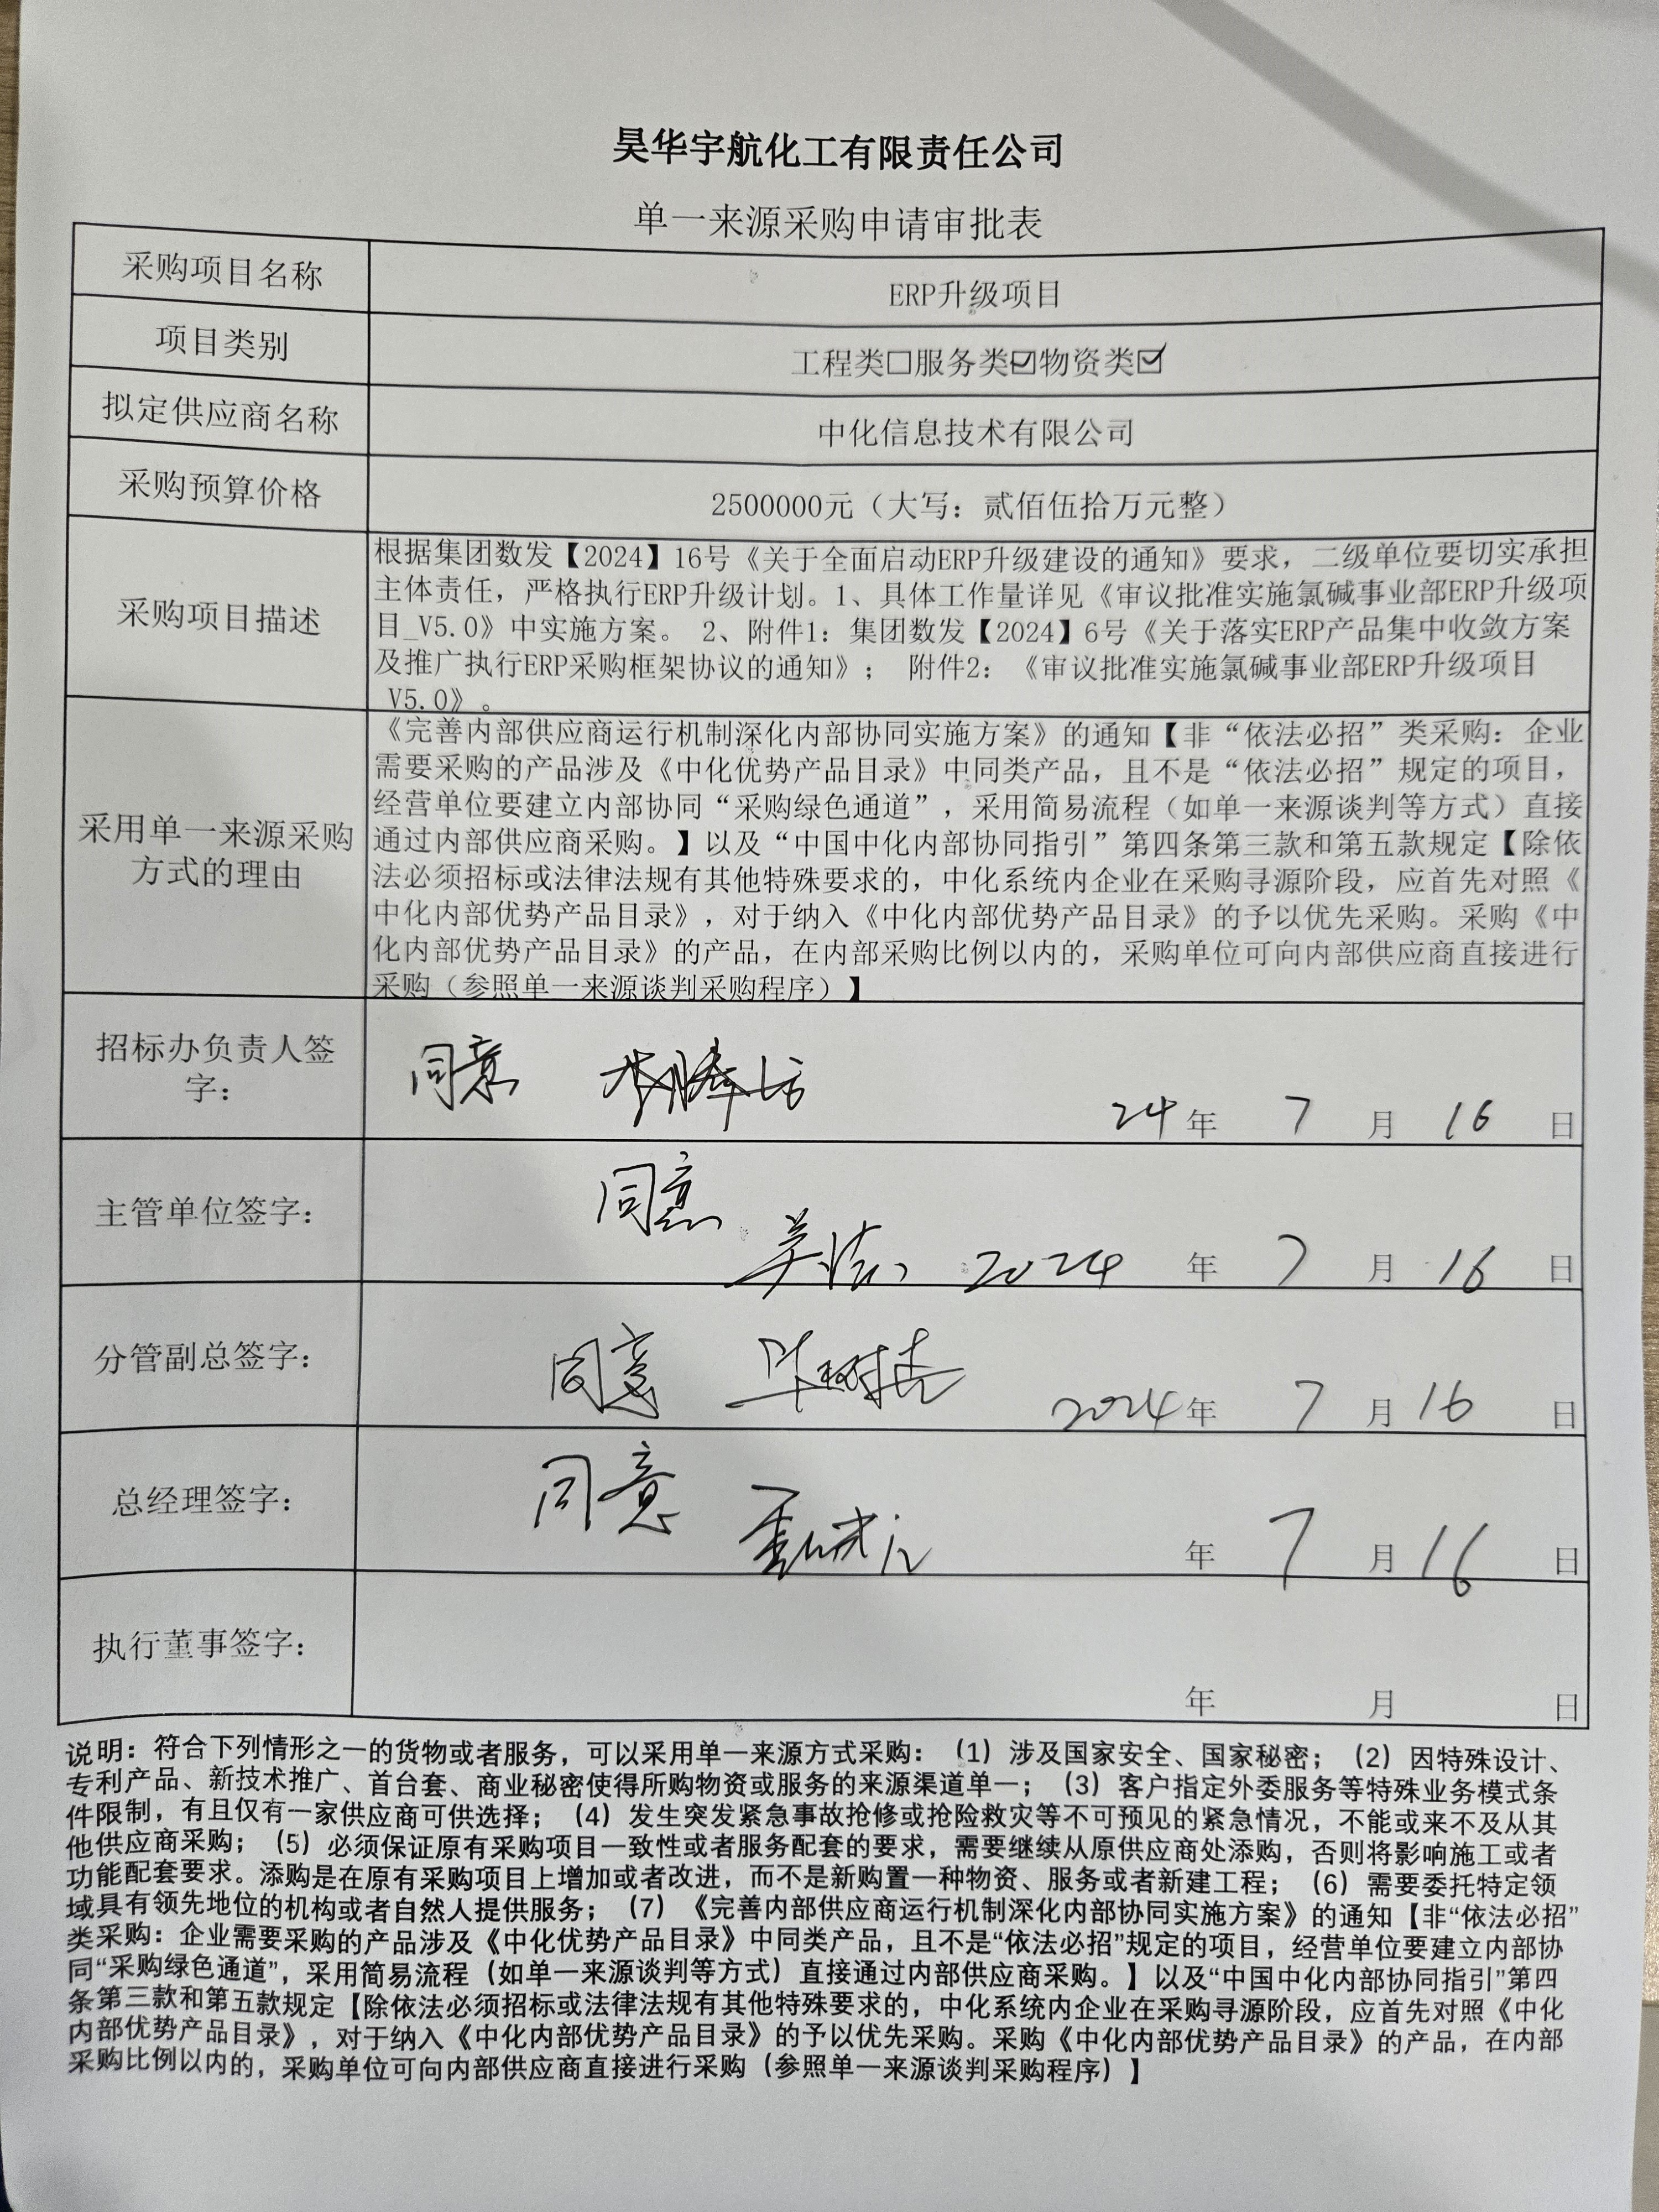 昊华宇航化工有限责任公司
单一来源采购申请审批表
采购项目名称
ERP升级项目
项目类别
工程类□服务类☑物资类☑
拟定供应商名称
中化信息技术有限公司
采购预算价格
2500000元（大写：贰佰伍拾万元整）
采购项目描述
根据集团数发【2024】16号《关于全面启动ERP升级建设的通知》要求，二级单位要切实承担
主体责任，严格执行ERP升级计划。1、具体工作量详见《审议批准实施氯碱事业部ERP升级项
目_V5.0》中实施方案。 2、附件1：集团数发【2024】6号《关于落实ERP产品集中收敛方案
及推广执行ERP采购框架协议的通知》； 附件2：《审议批准实施氯碱事业部ERP升级项目
_V5.0》。
采用单一来源采购
方式的理由
《完善内部供应商运行机制深化内部协同实施方案》的通知【非“依法必招”类采购：企业
需要采购的产品涉及《中化优势产品目录》中同类产品，且不是“依法必招”规定的项目，
经营单位要建立内部协同“采购绿色通道”，采用简易流程（如单一来源谈判等方式）直接
通过内部供应商采购。】以及“中国中化内部协同指引”第四条第三款和第五款规定【除依
法必须招标或法律法规有其他特殊要求的，中化系统内企业在采购寻源阶段，应首先对照《
中化内部优势产品目录》，对于纳入《中化内部优势产品目录》的予以优先采购。采购《中
化内部优势产品目录》的产品，在内部采购比例以内的，采购单位可向内部供应商直接进行
采购（参照单一来源谈判采购程序）】
招标办负责人签
字：
同意
24年 7 月 16 日
主管单位签字：
同意
2024 年 7 月 16 日
分管副总签字：
同意
2024年 7 月 16 日
总经理签字：
同意
年 7 月 16 日
执行董事签字：
年 月 日
说明：符合下列情形之一的货物或者服务，可以采用单一来源方式采购：（1）涉及国家安全、国家秘密；（2）因特殊设计、
专利产品、新技术推广、首台套、商业秘密使得所购物资或服务的来源渠道单一；（3）客户指定外委服务等特殊业务模式条
件限制，有且仅有一家供应商可供选择；（4）发生突发紧急事故抢修或抢险救灾等不可预见的紧急情况，不能或来不及从其
他供应商采购；（5）必须保证原有采购项目一致性或者服务配套的要求，需要继续从原供应商处添购，否则将影响施工或者
功能配套要求。添购是在原有采购项目上增加或者改进，而不是新购置一种物资、服务或者新建工程；（6）需要委托特定领
域具有领先地位的机构或者自然人提供服务；（7）《完善内部供应商运行机制深化内部协同实施方案》的通知【非“依法必招”
类采购：企业需要采购的产品涉及《中化优势产品目录》中同类产品，且不是“依法必招”规定的项目，经营单位要建立内部协
同“采购绿色通道”，采用简易流程（如单一来源谈判等方式）直接通过内部供应商采购。】以及“中国中化内部协同指引”第四
条第三款和第五款规定【除依法必须招标或法律法规有其他特殊要求的，中化系统内企业在采购寻源阶段，应首先对照《中化
内部优势产品目录》，对于纳入《中化内部优势产品目录》的予以优先采购。采购《中化内部优势产品目录》的产品，在内部
采购比例以内的，采购单位可向内部供应商直接进行采购（参照单一来源谈判采购程序）】